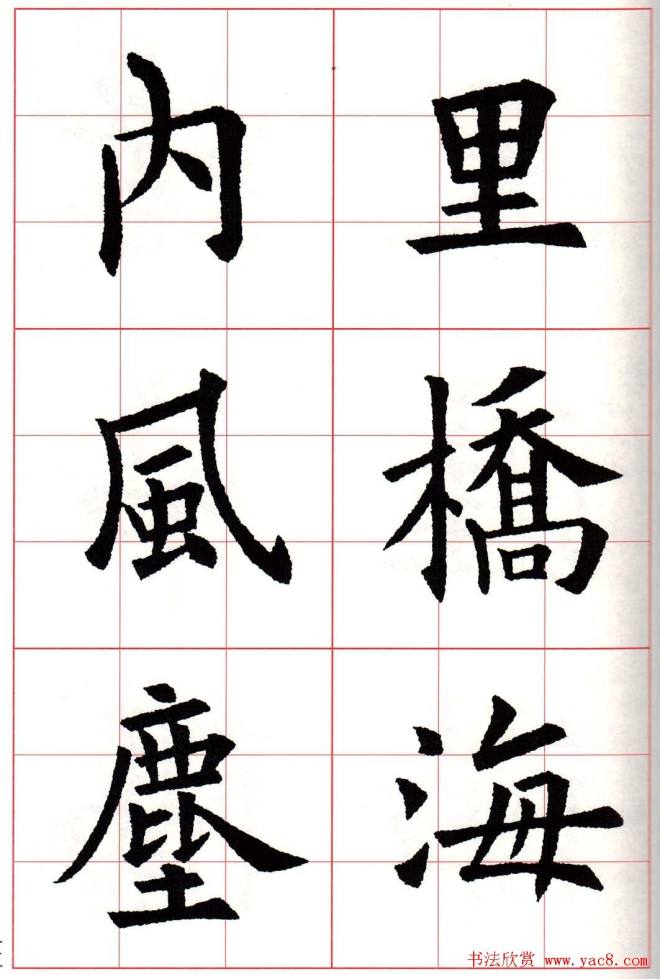 里橋海
内風塵
书法欣赏 www.yac8.com